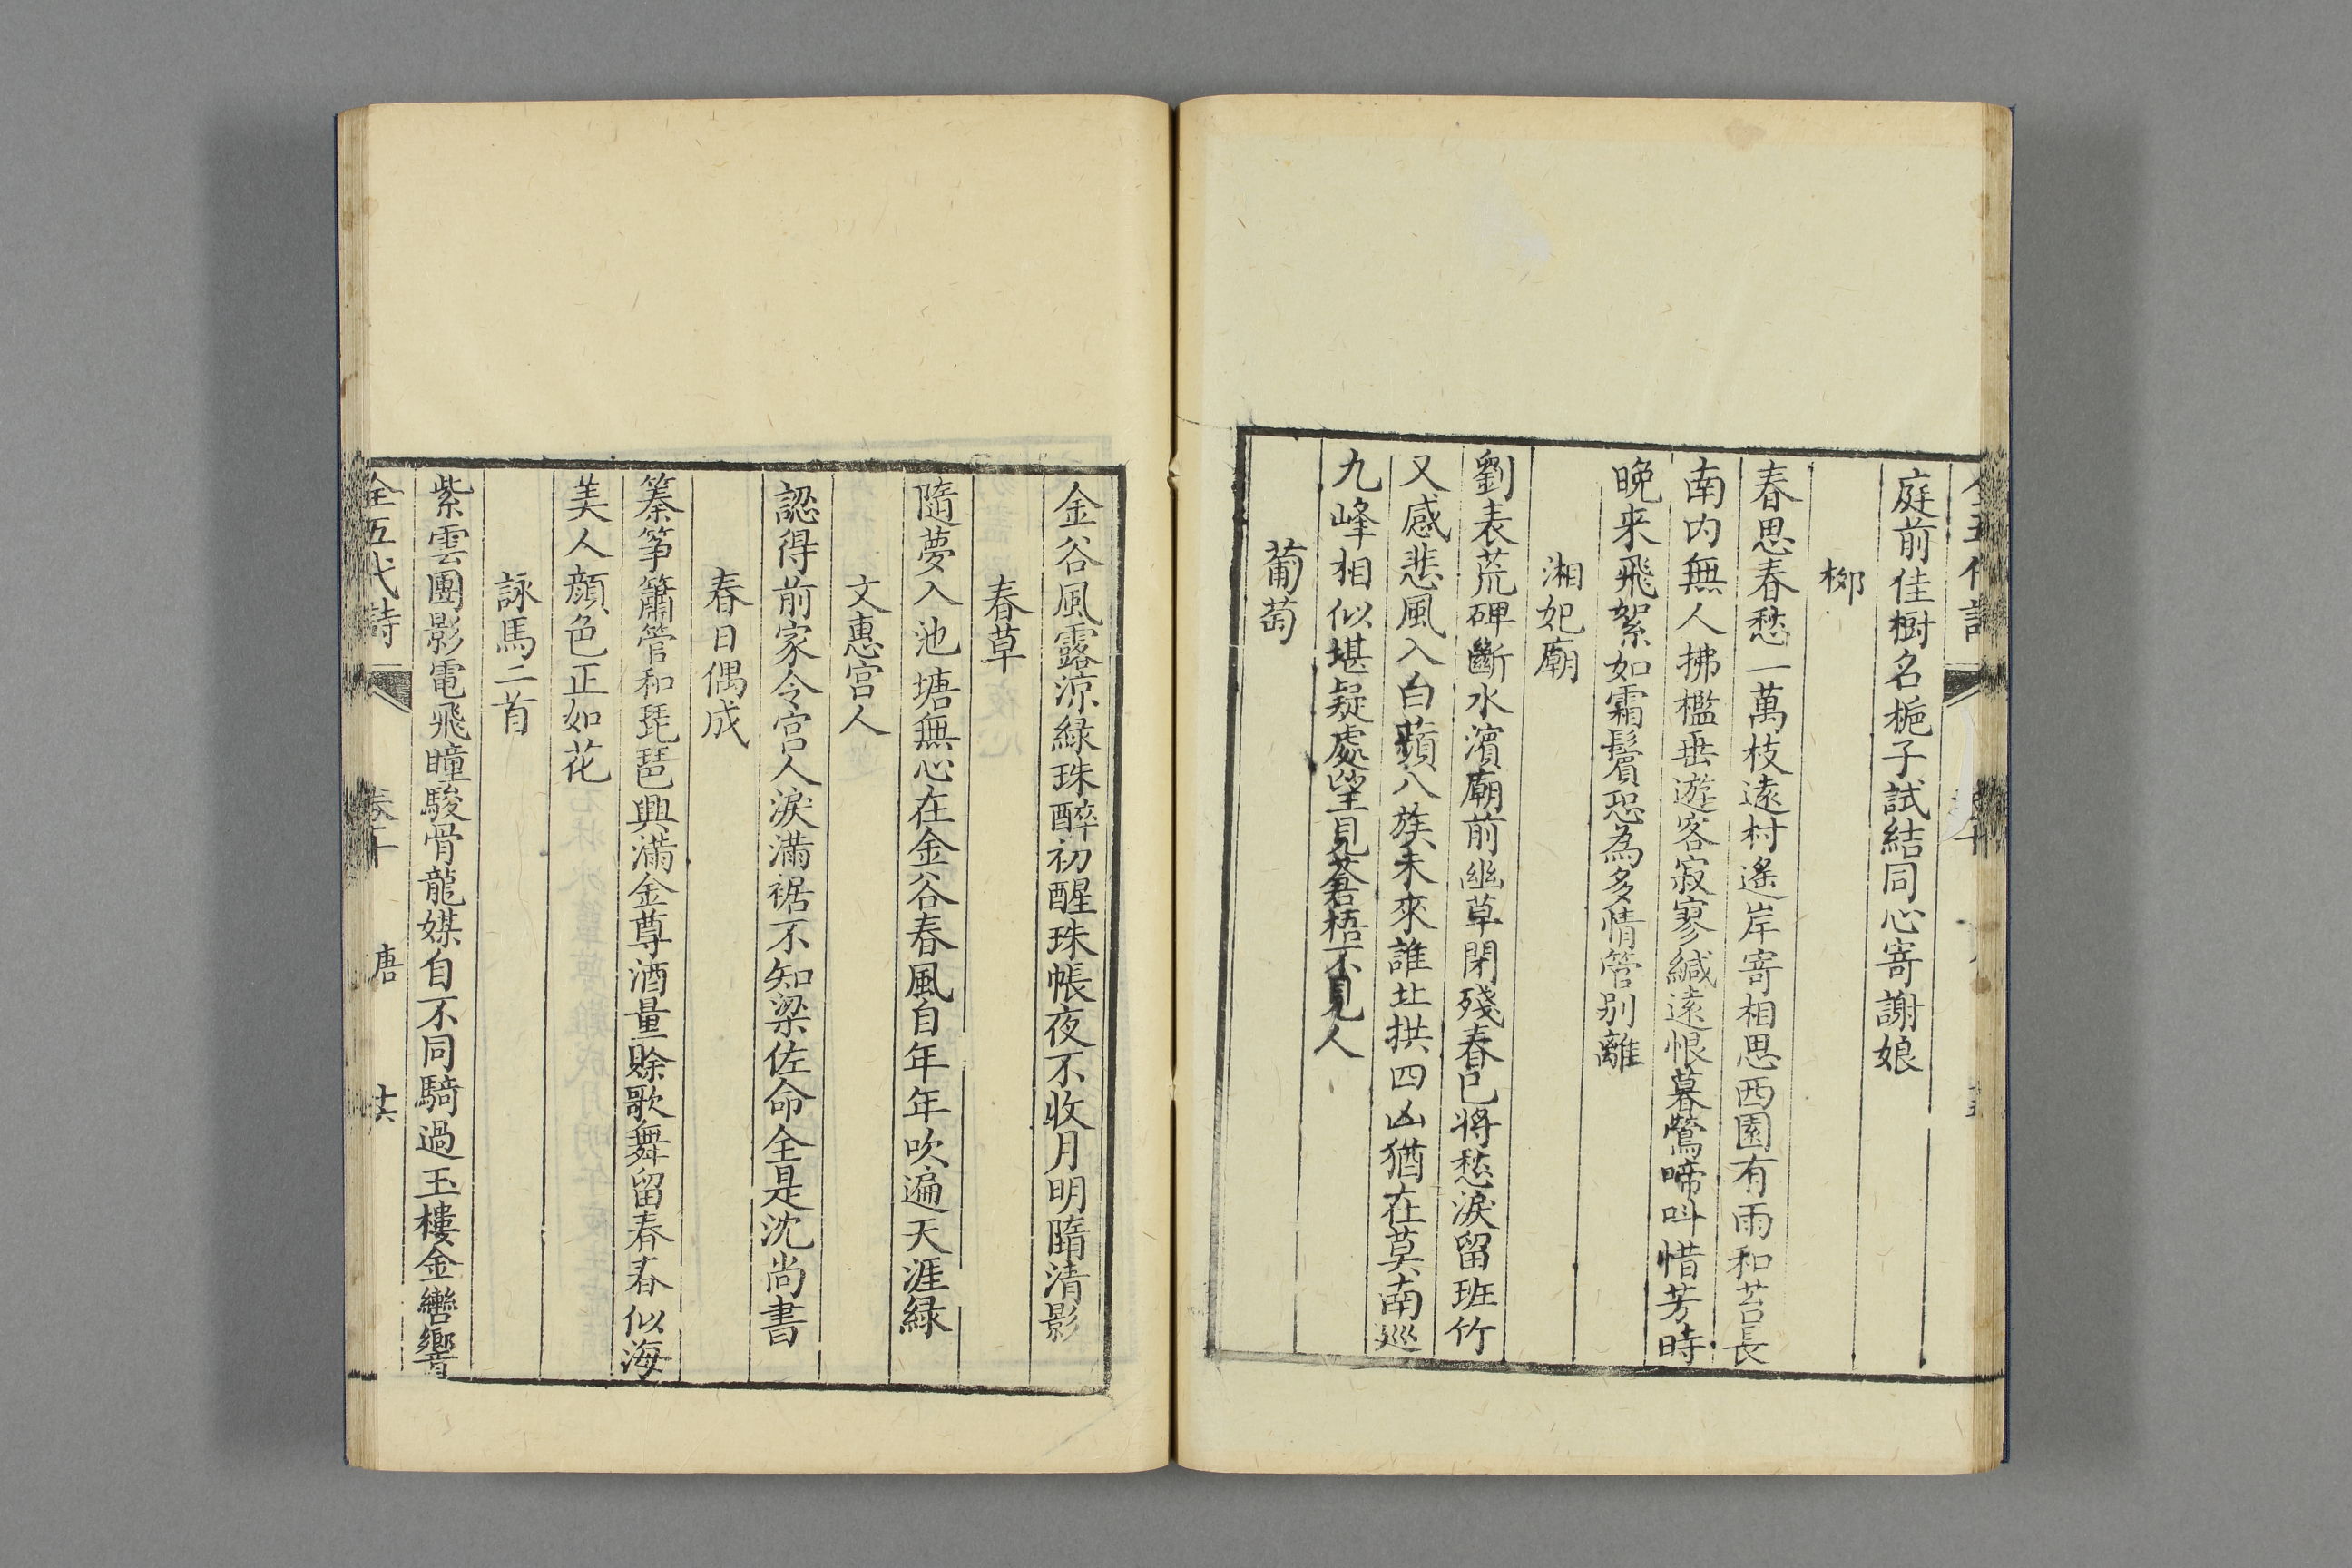 庭前佳樹名梔子試結同心寄謝娘
柳
春思春愁一萬枝遠村遙岸寄相思西園有雨和苔長
南内無人拂檻垂遊客寂寥緘遠恨暮鶯啼叫惜芳時
晚来飛絮如霜鬢恐為多情管别離
湘妃廟
劉表荒碑斷水濱廟前幽草閉殘春已將愁淚留班竹
又感悲風入白蘋八族未來誰北拱四凶猶在莫南巡
九峰相似堪疑處望見蒼梧不見人
葡萄
金谷風露涼緑珠醉初醒珠帳夜不收月明隋清影
春草
隨夢入池塘無心在金谷春風自年年吹遍天涯緑
文惠宫人
認得前家令宫人淚滿裾不知梁佐命全是沈尚書
春日偶成
秦筝簫管和琵琶興滿金尊酒量賒歌舞留春春似海
美人顔色正如花
詠馬二首
紫雲團影電飛瞳駿骨龍媒自不同騎過玉樓金轡響
全五代詩 卷十 唐